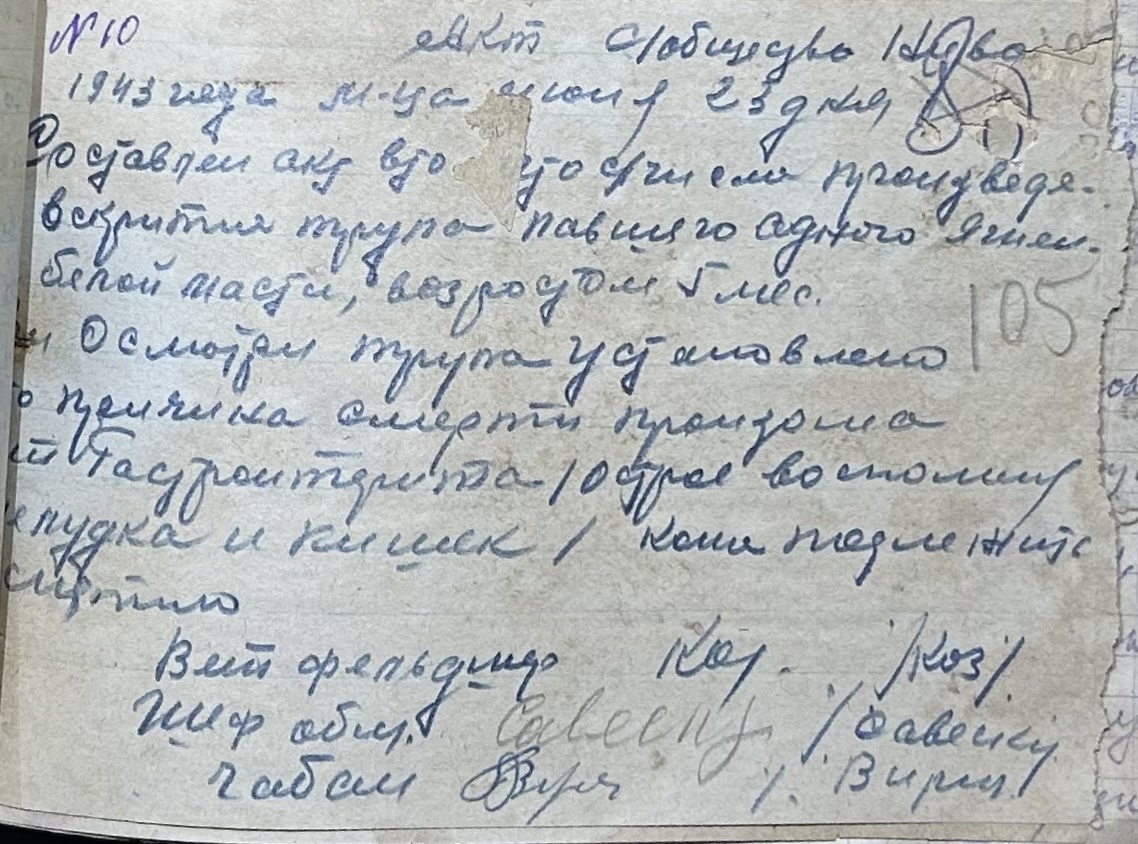 № 10 Акт С/общество
1943 года м-ца июня 23 дня
Составлен акт в то что с/числа произведе-
вскрытия трупа павшего одного ягнен-
белой масти, возростом 5 мес.
105
и Осмотри трупа установлено
о причина смерти произошла
т Гастроитерита / острое восполину
елудка и кишек / кожа подлежить
снятию
Вет фельдшер Коз. /Коз/.
Шеф общ. Савенку /Савенку
Чабан /. Вирич.